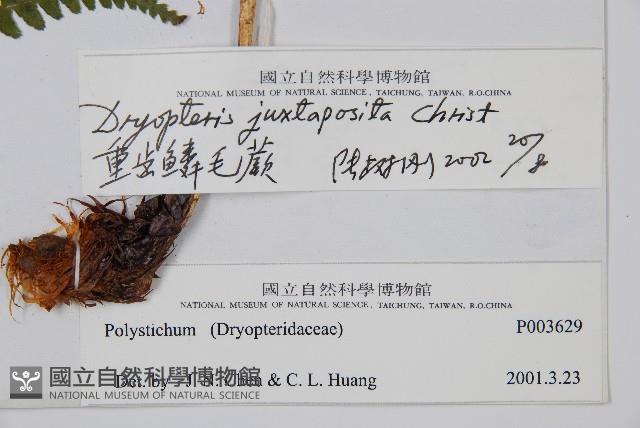 國立自然科學博物館
NATIONAL MUSEUM OF NATURAL SCIENCE, TAICHUNG, TAIWAN, R.O.CHINA
Dryopteris juxtaposita Christ
重齒鱗毛蕨 陸樹刚 2002 20/8
國立自然科學博物館
NATIONAL MUSEUM OF NATURAL SCIENCE, TAICHUNG, TAIWAN, R.O.CHINA
Polystichum (Dryopteridaceae) P003629
Det. by J. N. Chen & C. L. Huang 2001.3.23
國立自然科學博物館
NATIONAL MUSEUM OF NATURAL SCIENCE